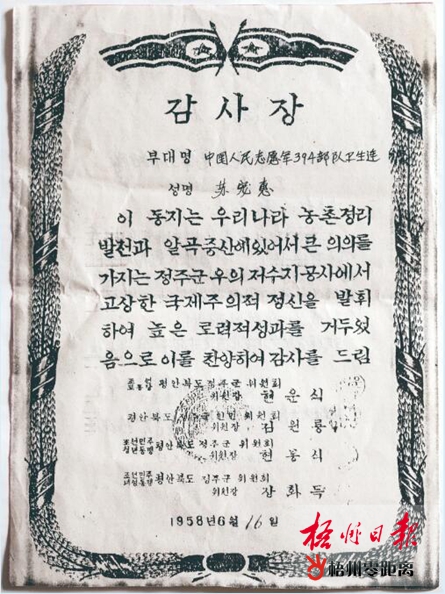 감사장
부대명 中国人民志愿军394部队卫生连
성명 苏
이 동지는 우리나라 농촌정리
발전과 알곡증산에있어서 큰 의의를
가지는 정주군 우의 저수지공사에서
고상한 국제주의적 정신을 발휘
하여 높은 로력적성과를 거두었
음으로 이를 찬양하여 감사를 드림
평안북도 정주군 위원회
위원장 윤식
평안북도 인민 위원회
위원장 김원룡
조선민주청년동맹 평안북도 정주군 위원회
위원장 현봉식
조선민주녀성동맹 평안북도 위원회
위원장 장화득
1958년6월 16일
梧州日报
梧州零距离